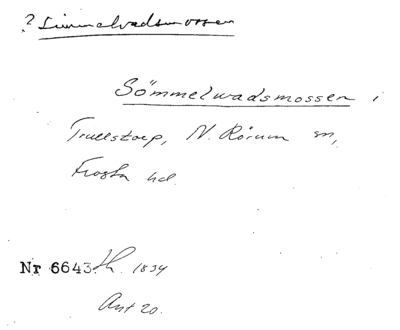 ? Simmelvadsmossen
Sömmelwadsmossen i
Trulstorp, N. Rörum sn,
Frosta hd.
Nr 6643. Th. 1834
Ant 20.